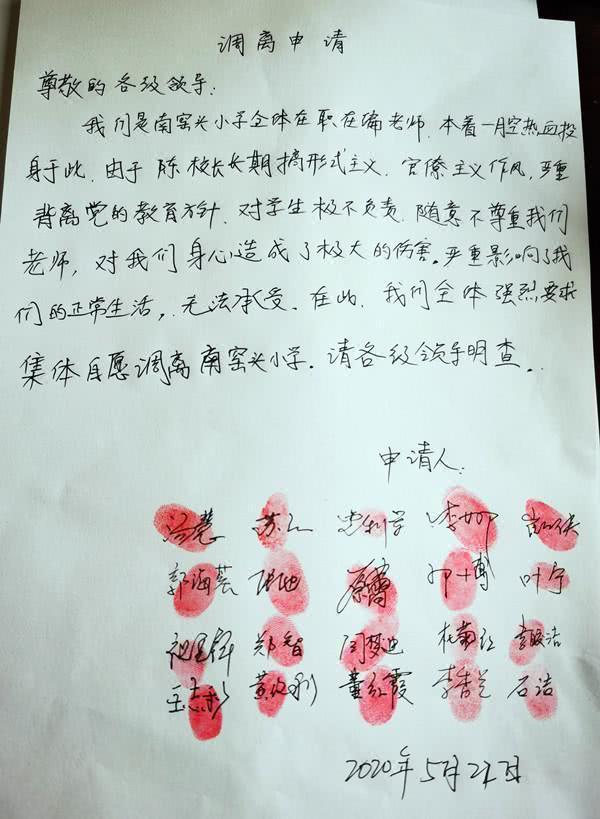 调离申请
尊敬的各级领导：
我们是南窑头小学全体在职在编老师，本着一腔热血投
身于此，由于陈校长长期搞形式主义、官僚主义作风，严重
背离党的教育方针，对学生极不负责，随意不尊重我们
老师，对我们身心造成了极大的伤害。严重影响了我
们的正常生活，无法承受。在此，我们全体强烈要求
集体自愿调离南窑头小学。请各级领导明查。
申请人：
李娜
郭海芸 原雷 叶宁
郑智 闫梦迪
董红霞 李香兰 石洁
2020年5月21日